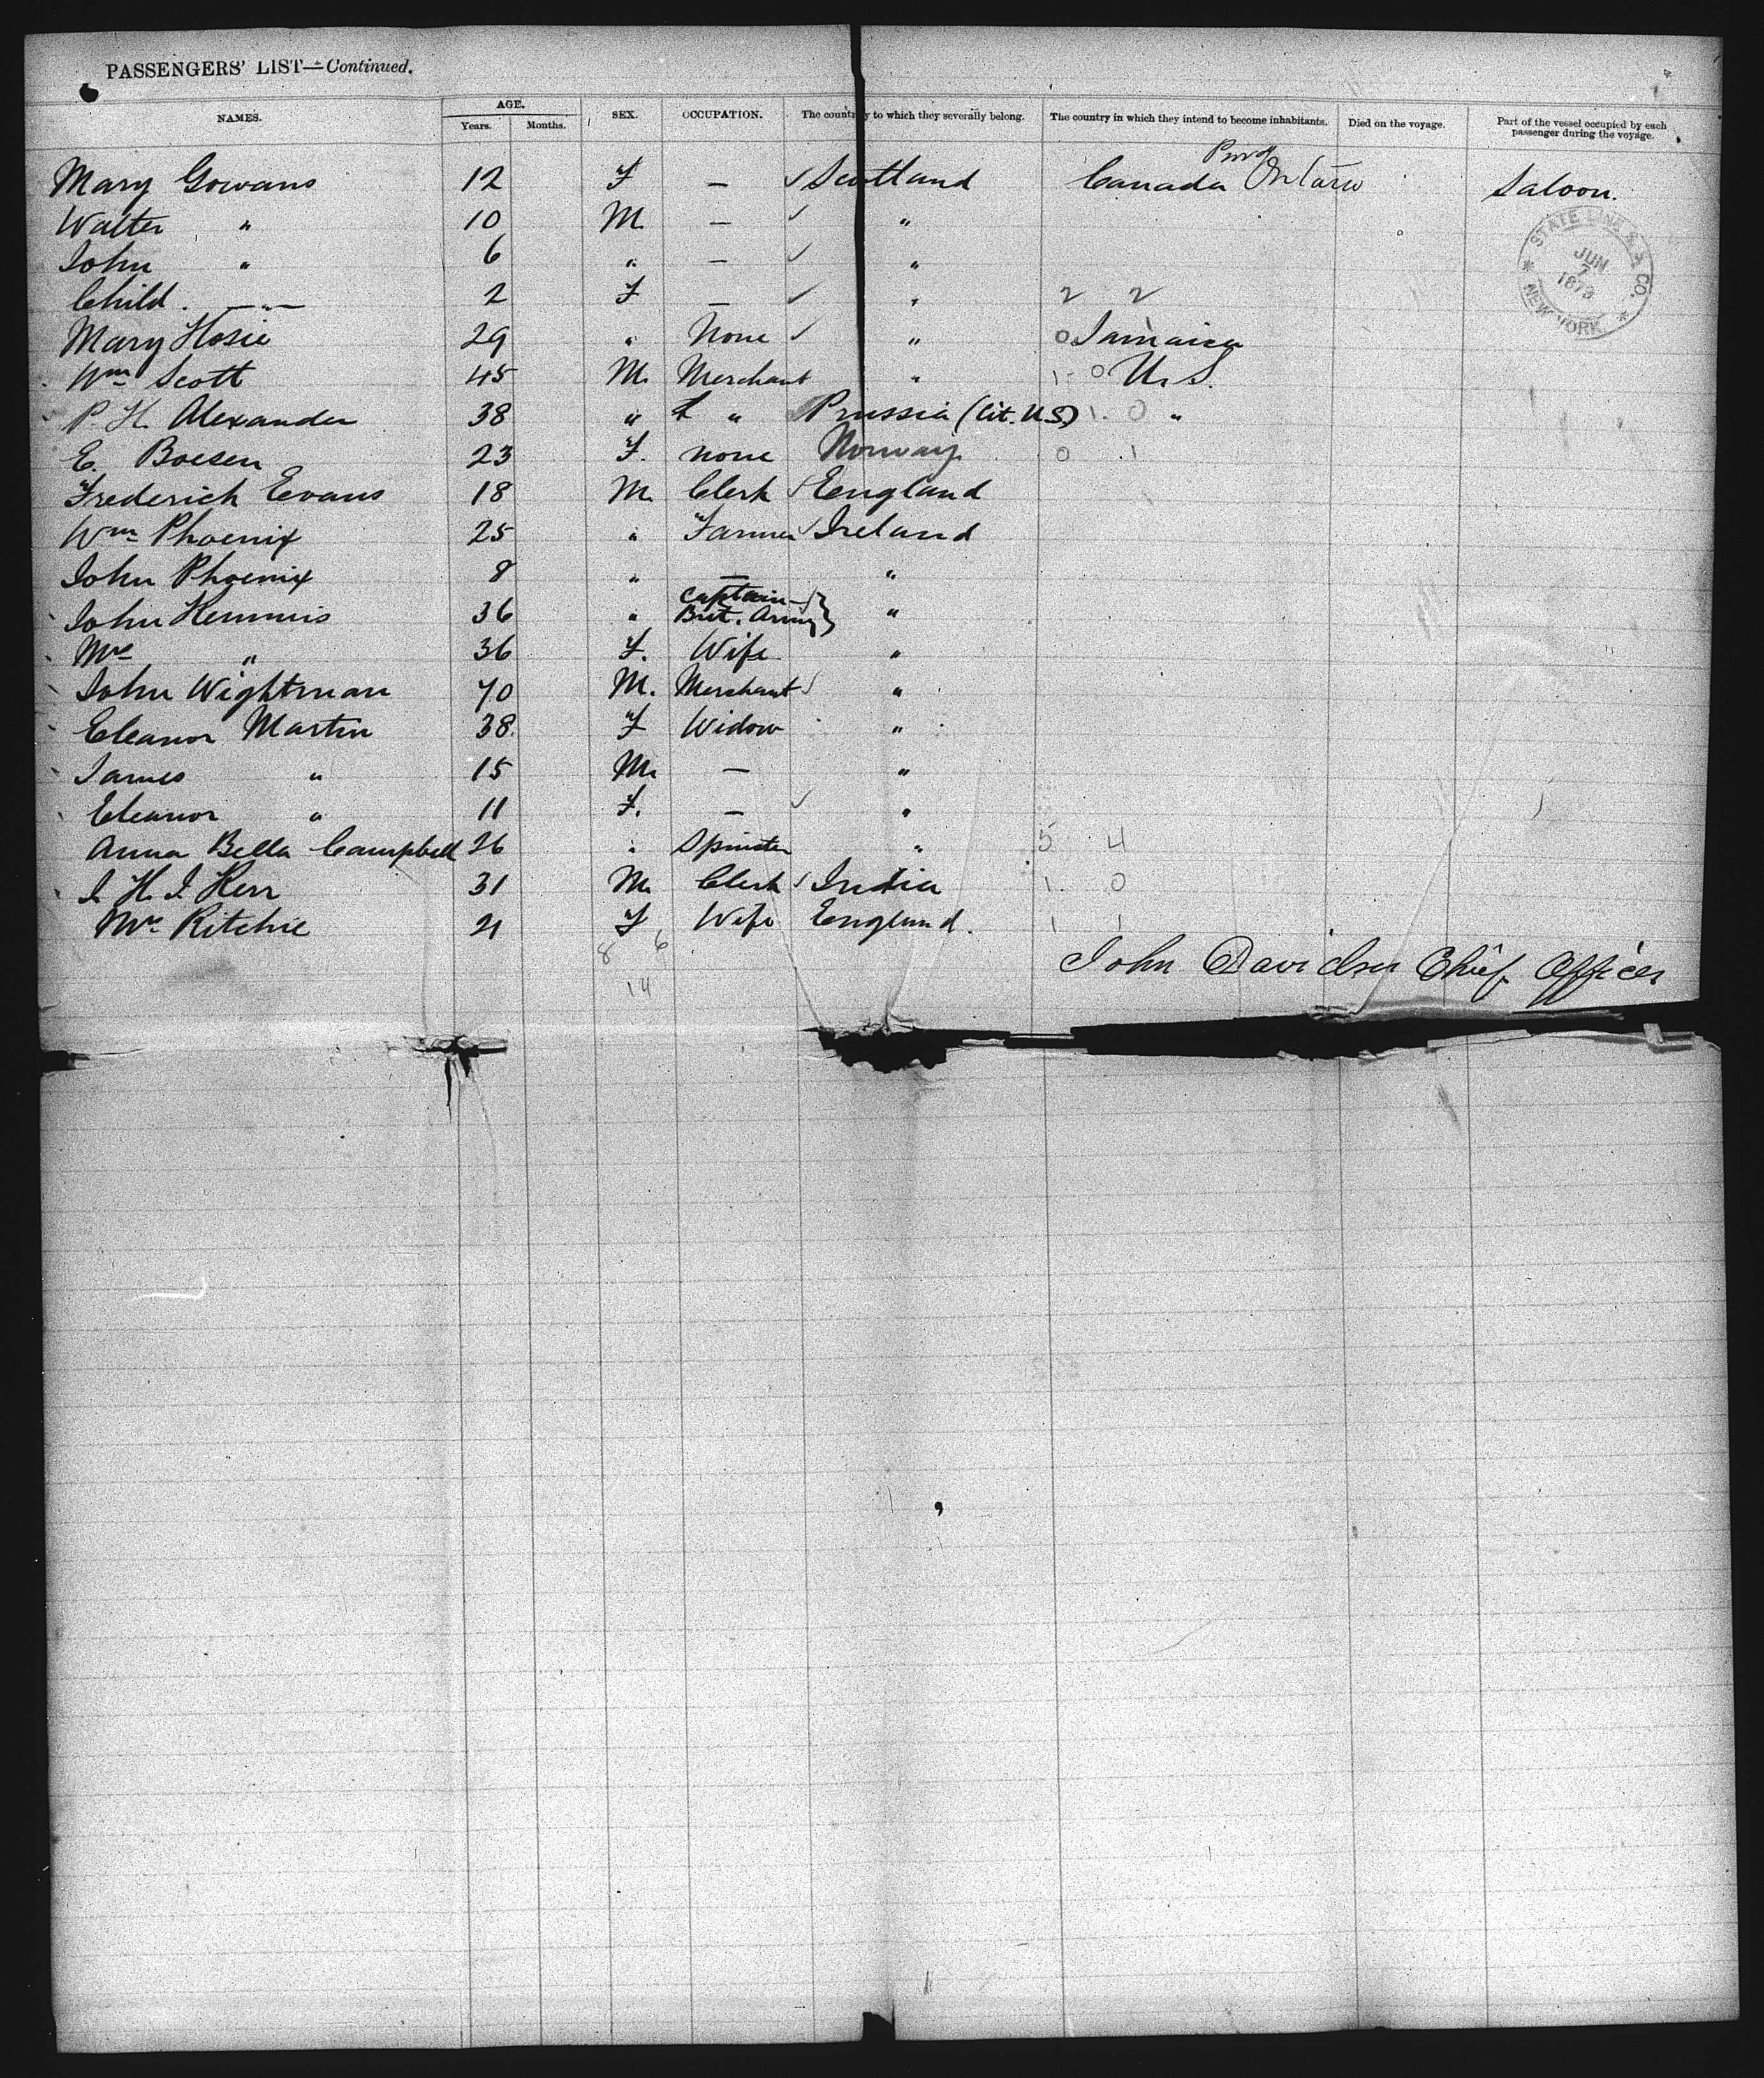 PASSENGERS' LIST—Continued.
NAMES. AGE. Years. Months. SEX. OCCUPATION. The country to which they severally belong. The country in which they intend to become inhabitants. Died on the voyage. Part of the vessel occupied by each passenger during the voyage.
Mary Gowans 12 F — ✓ Scotland Canada Prov Ontario Saloon.
Walter " 10 M. — ✓ "
John " 6 " — ✓ "
Child. —"— 2 F — ✓ " 2 2
Mary Hosie 29 " None ✓ " 0 1 Jamaica
Wm Scott 45 M. Merchant " 1 0 U.S.
P. H. Alexander 38 " " Prussia (Cit. U.S.) 1. 0 "
E. Boesen 23 F. none Norway 0 1
Frederich Eevans 18 M. Clerk ✓ England
Wm Phoenix 25 " Farmer ✓ Ireland
John Phoenix 8 " — "
John Kemmis 36 " Captain Brit. Army } "
Mrs " 36 F. Wife "
John Wightman 70 M. Merchant ✓ "
Eleanor Martin 38 F Widow "
James " 15 M. — "
Eleanor " 11 F. — ✓ "
Anna Bella Campbell 26 " Spinster " 5 4
J. H. J. Kerr 31 M. Clerk ✓ India 1. 0
Mrs Ritchie 21 F Wife England. 1 1
8 6
14
John Davidson Chief Officer
STATE LINE S.S. CO.
JUN
7
1879
* NEW YORK *